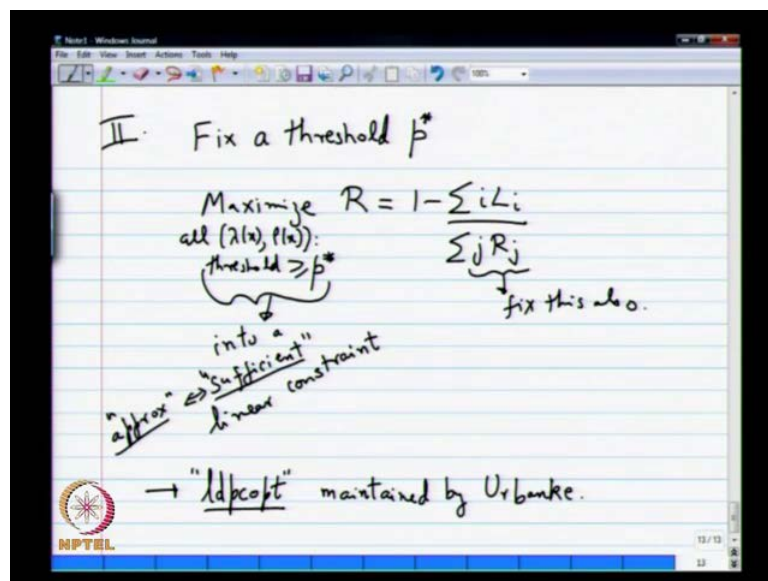 Note1 - Windows Journal
File Edit View Insert Actions Tools Help
100%
II. Fix a threshold p*
Maximize R = 1 - ΣiLi / ΣjRj
all (λ(x), ρ(x)):
threshold ≥ p*
fix this also.
into a
"approx" ⇔ "sufficient"
linear constraint
→ "ldpcopt" maintained by Urbanke.
NPTEL
13/13
13